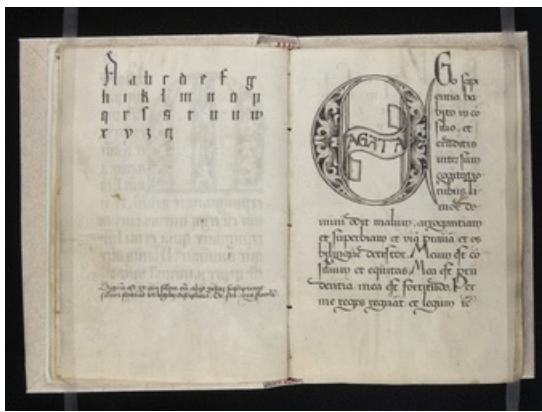 A a b c d e f g
h i k l m n o p
x y z
AGATA
Go sapi
entia ha
bito in cō
silio, et
eruditis
intersum
cogitatio
nibus. Ti
mor do
mini odit malum, arrogantiam
et superbiam et viā pravā et os
bilingue detestor. Meum est cō
silium et equitas. Mea est pru
dentia mea est fortitudo. Per
me reges regnāt et legum